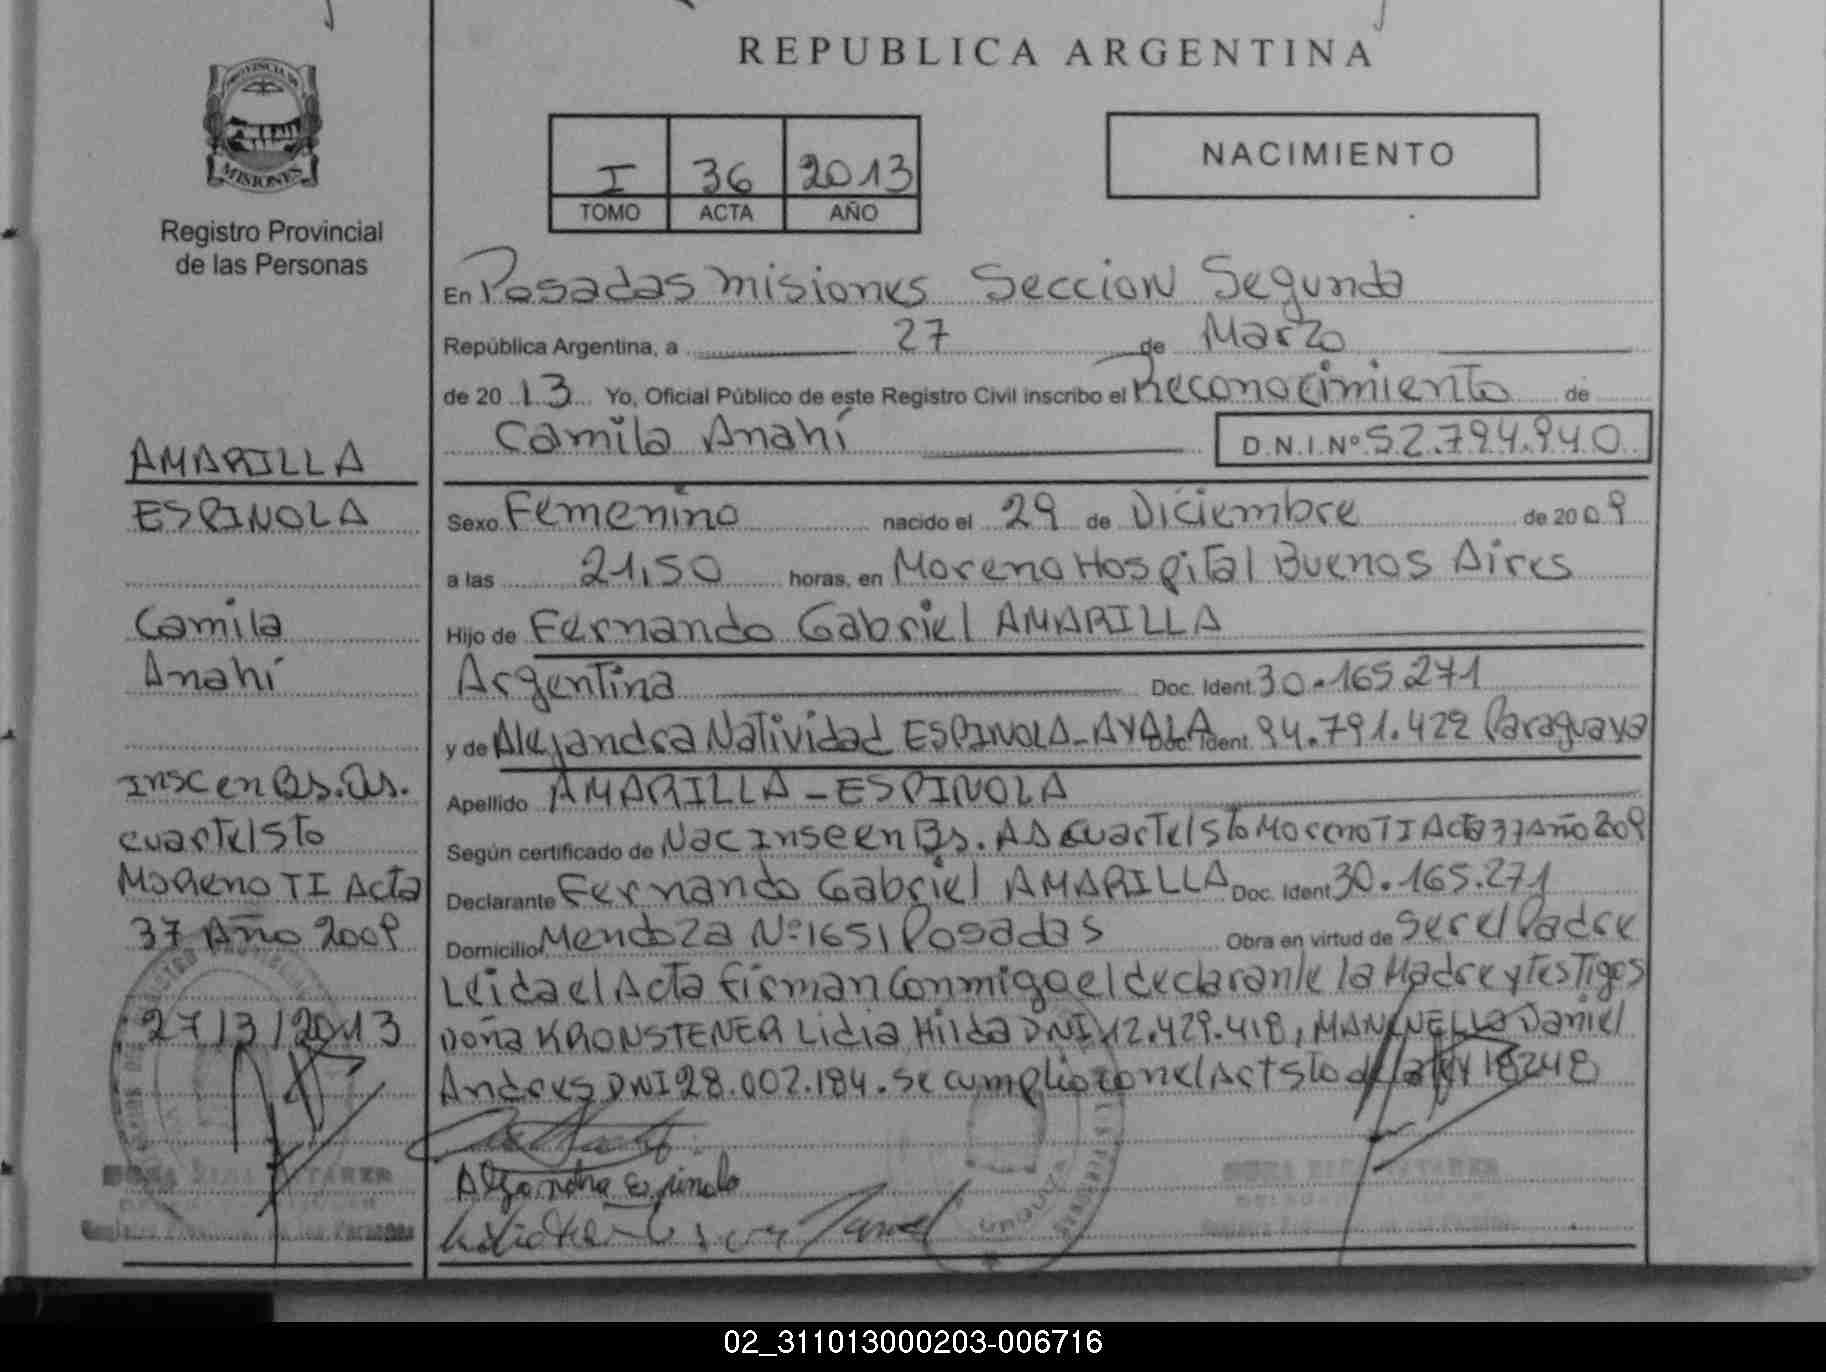 REPUBLICA ARGENTINA
PROVINCIA DE
MISIONES
Registro Provincial
de las Personas
I 36 2013
TOMO ACTA AÑO
NACIMIENTO
En Posadas misiones Seccion Segunda
República Argentina, a 27 de Marzo
de 2013 Yo, Oficial Público de este Registro Civil inscribo el Reconocimiento de
Camila Anahí D.N.I.Nº 52.794.940
AMARILLA
ESPINOLA
Camila
Anahí
Insc en Bs. As.
cuartel 5to
Moreno TI Acta
37 Año 2009
27/3/2013
Sexo Femenino nacido el 29 de Diciembre de 2009
a las 21,50 horas, en Moreno Hospital Buenos Aires
Hijo de Fernando Gabriel AMARILLA
Argentina Doc. Ident. 30.165.271
y de Alejandra Natividad ESPINOLA-AYALA Doc. Ident. 94.791.422 Paraguaya
Apellido AMARILLA-ESPINOLA
Según certificado de Nac Insc en Bs. As cuartel 5to Moreno TI Acta 37 Año 209
Declarante Fernando Gabriel AMARILLA Doc. Ident 30.165.271
Domicilio Mendoza Nº 1651 Posadas Obra en virtud de Ser el Padre
Leida el Acta firman Conmigo el declarante la Madre y testigos
Doña KRONSTENER Lidia Hilda DNI 12.429.418, Daniel
Andres DNI 28.002.184. se cumplio con el Art 5to de la ley 18248
Alejandra Espinola
02_311013000203-006716